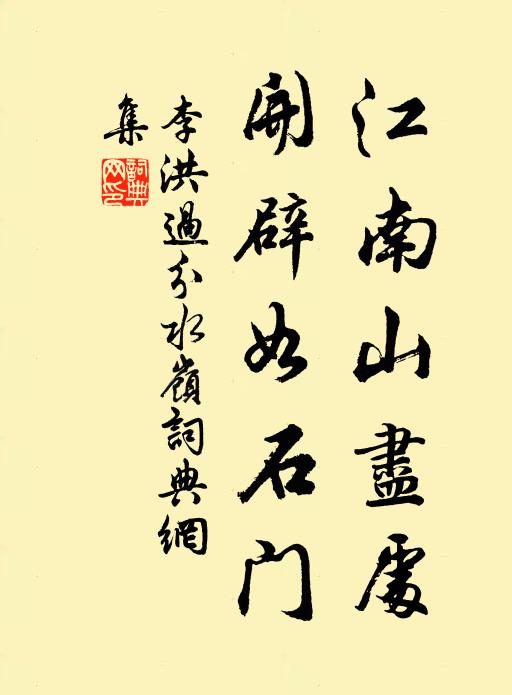 江南山盡處
開辟如石门
李洪過分水嶺詞典網
集
詞典網印